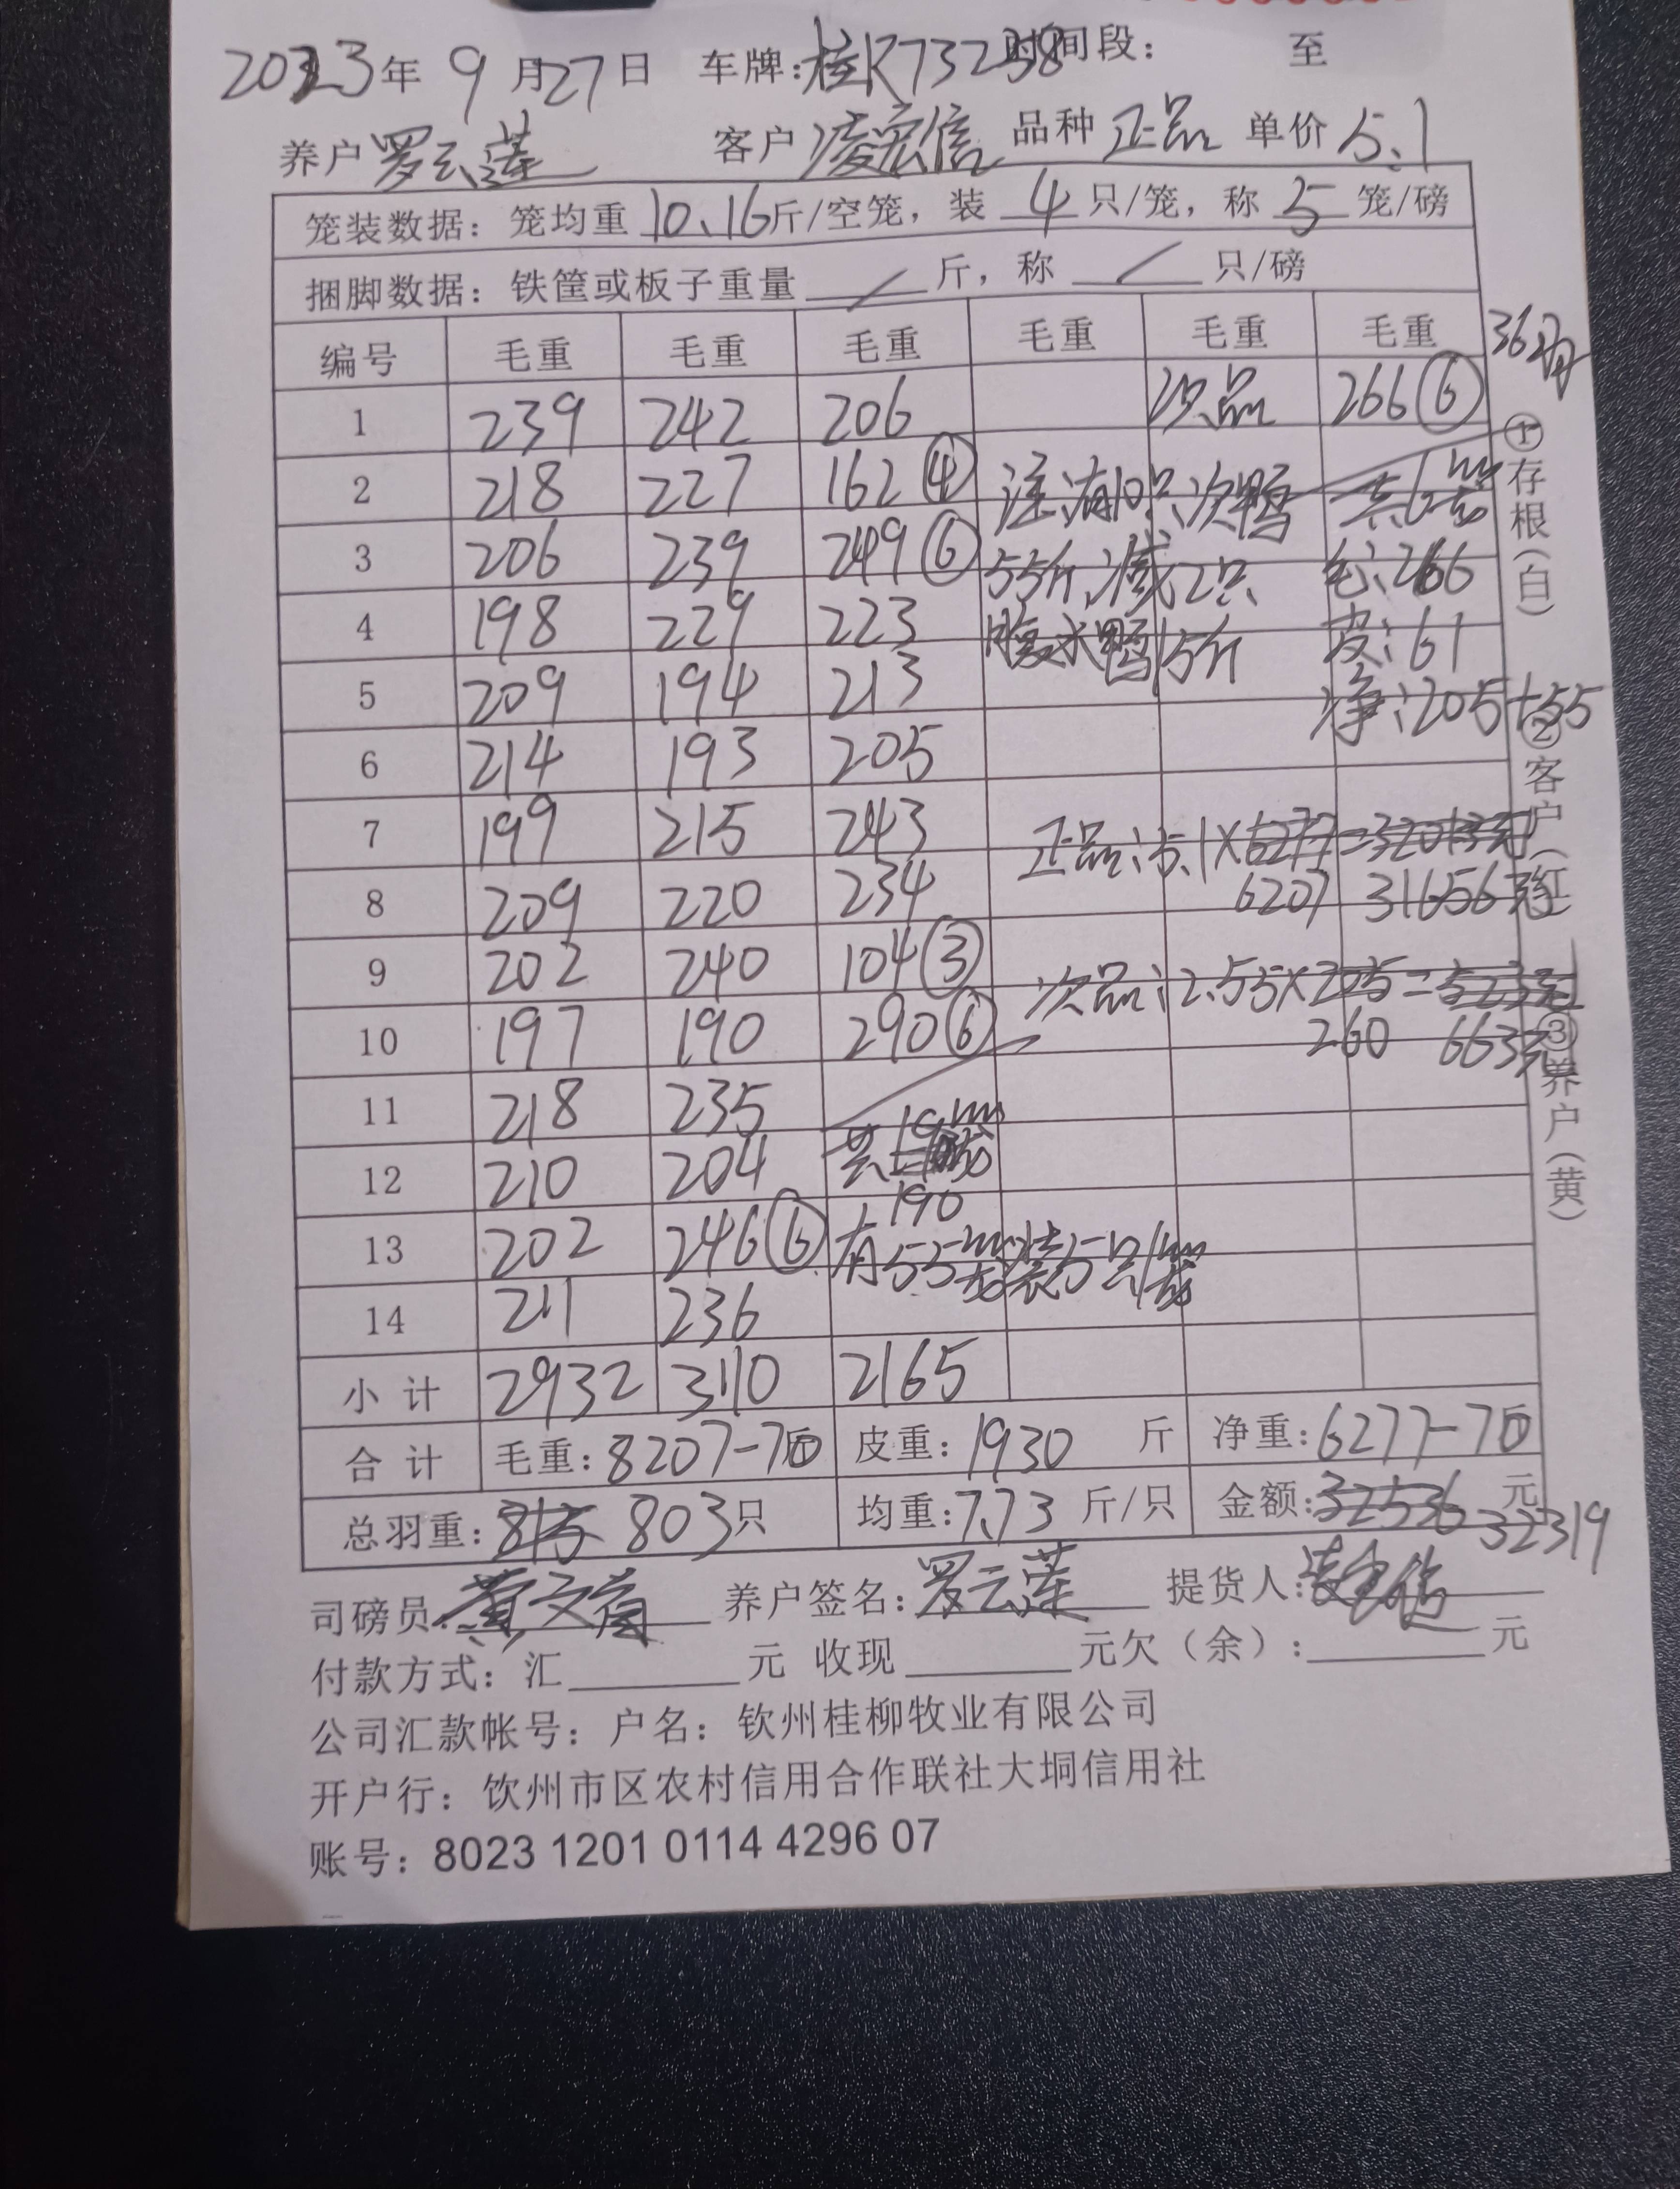 2023年 9月27日 车牌:桂K73238 时间段: 至
养户 罗云莲 客户 凌宏信 品种 正品 单价 5.1
笼装数据: 笼均重 10.16斤/空笼, 装 4 只/笼, 称 5 笼/磅
捆脚数据: 铁筐或板子重量 / 斤, 称 / 只/磅
编号 毛重 毛重 毛重 毛重 毛重 毛重 36日龄
1 239 242 206 次品 266⑥
2 218 227 162④ 注:有10只次鸭 共6笼
3 206 239 249⑥ 55斤,减2只 毛:266
4 198 229 223 腹水鸭15斤 皮:61
5 209 194 213 净:205+55
6 214 193 205
7 199 215 243 正品:5.1×6277=32013元
8 209 220 234 6207 31656元
9 202 240 104③ 次品:2.55×205=523元
10 197 190 290⑥ 260 663元
11 218 235
12 210 204 共 笼
190
13 202 246⑥ 有55笼装5只/笼
14 211 236
小 计 2932 3110 2165
合 计 毛重: 8207-70 皮重: 1930 斤 净重: 6277-70
总羽重: 815 803只 均重: 7.73 斤/只 金额: 32536 元
32319
司磅员: 黄文 养户签名: 罗云莲 提货人: 凌宏信
付款方式: 汇 元 收现 元欠(余): 元
公司汇款帐号: 户名: 钦州桂柳牧业有限公司
开户行: 饮州市区农村信用合作联社大垌信用社
账号: 8023 1201 0114 4296 07
①存根(白)
②客户(红)
③养户(黄)